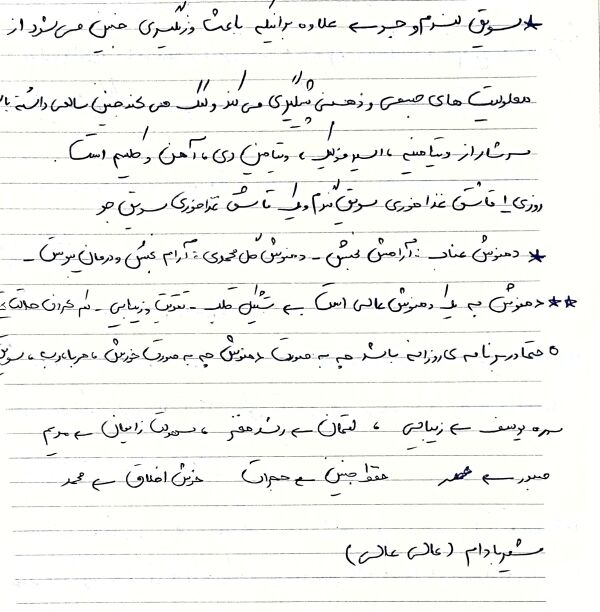 * سویق گندم و جو ← علاوه براینکه باعث وزنگیری جنین می شود از
معلولیت های جسمی و ذهنی پیشگیری می کند و کمک می کند جنین سالمی داشته با
سرشار از ویتامینه ، اسید فولیک ، ویتامین دی ، آهن و کلسیم است .
روزی ۱ قاشق غذاخوری سویق گندم و یک قاشق غذاخوری سویق جو
* دمنوش عناب : آرامش بخش - دمنوش گل محمدی : آرام بخش و درمان یبوست -
** دمنوش به یک دمنوش عالی است ← تپش قلب - تقویت و زیبایی - کم کردن حالت
○ حتما در برنامه ی روزانه باشد چه به صورت دمنوش چه به صورت خورش ، مربا ، رب ، سویق
سوره یوسف ← زیبایی ، لقمان ← رشد مغز ، سهولت زایمان ← مریم
صبور ← عصر حفظ جنین ← حجرات خوش اخلاق ← محمد
شیربادام (عالی عالی)